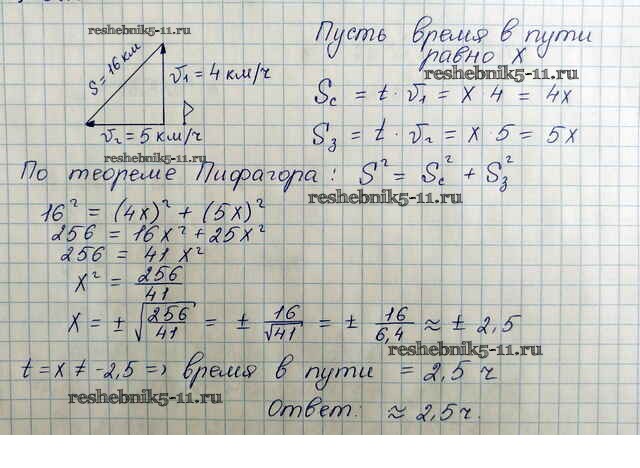 reshebnik5-11.ru
S = 16 км
v₁ = 4 км/ч
v₂ = 5 км/ч
reshebnik5-11.ru
Пусть время в пути
равно x
reshebnik5-11.ru
Sс = t · v₁ = x · 4 = 4x
Sз = t · v₂ = x · 5 = 5x
По теореме Пифагора: S² = Sс² + Sз²
reshebnik5-11.ru
16² = (4x)² + (5x)²
256 = 16x² + 25x²
256 = 41 x²
x² = 256/41
x = ± √(256/41) = ± 16/√41 = ± 16/6,4 ≈ ± 2,5
reshebnik5-11.ru
t = x ≠ -2,5 => время в пути = 2,5 ч
reshebnik5-11.ru
Ответ: ≈ 2,5 ч.